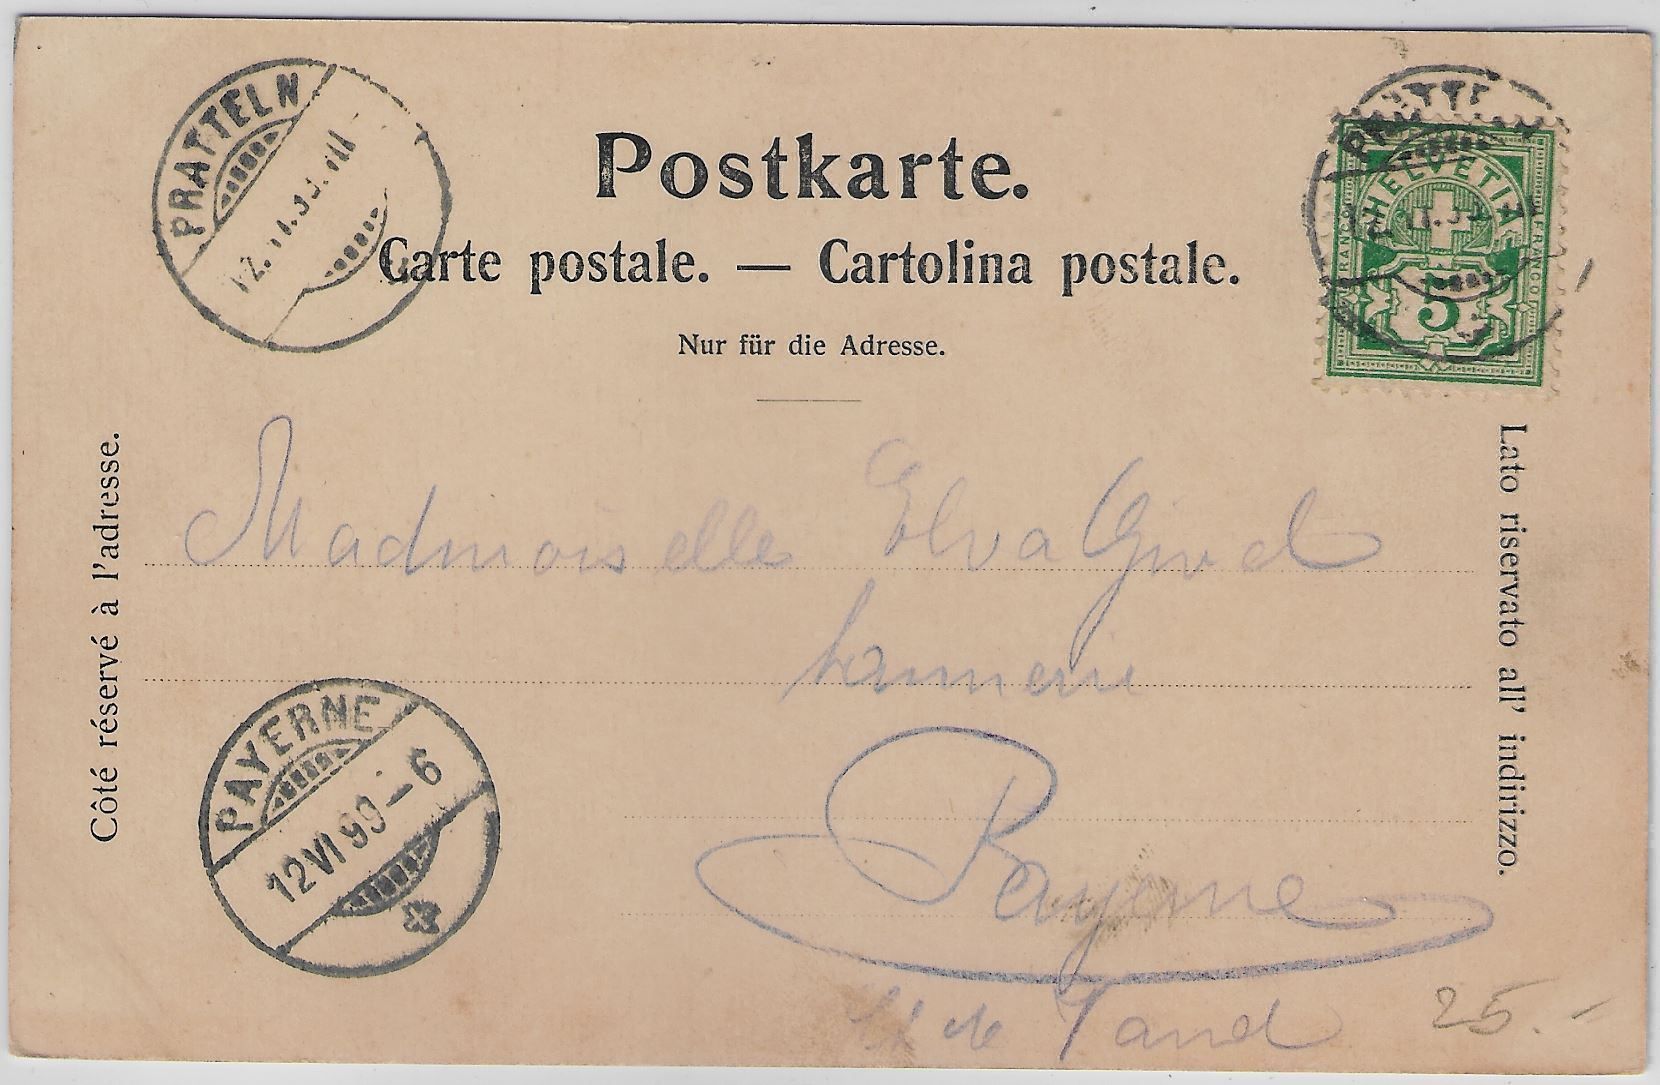 Postkarte.
Carte postale. — Cartolina postale.
Nur für die Adresse.
Côté réservé à l'adresse.
Lato riservato all' indirizzo.
PRATTELN
12.VI.99.III
PRATTE
VI.99
HELVETIA
FRANCO
FRANCO
5
Madmoiselle Elva
Payerne
PAYERNE
12 VI 99 - 6
Ct de Vaud
25.-